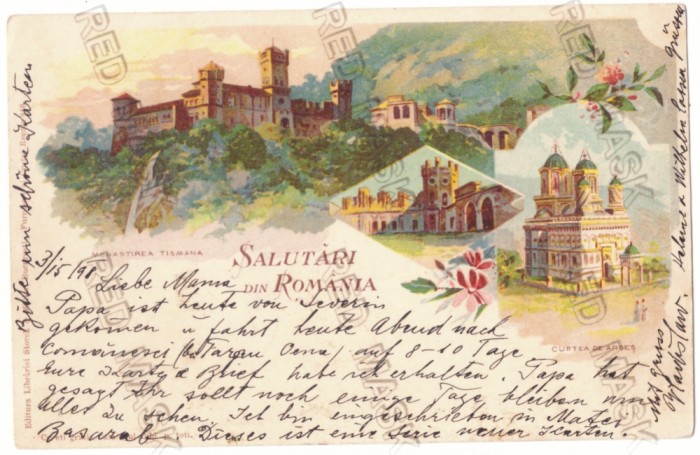 MONASTIREA TISMANA
SALUTĂRI
DIN ROMÂNIA
CURTEA DE ARGEȘ
3/15 98
Liebe Mama
Papa ist heute von Severin
gekomen u fährt heute Abend nach
Comănesci (b. Targu Ocna) auf 8-10 Tage
Eure Karty & Brief habe ich erhalten. Papa hat
gesagt Ihr sollt noch einige Tage bleiben um
Alles zu sehen. Ich bin eingeschrieben in Matei
Basarab. Dieses ist eine Serie neuer Karten.
Mit Gruss
Bitte um schöne Karten
Helene u Wilhelm lassen Grüssen
Editura Librăriei Storck
RED MASK